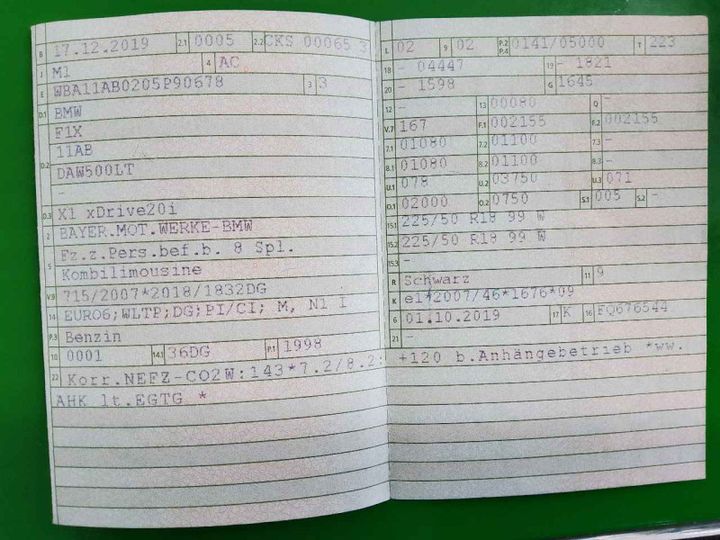 B 17.12.2019 2.1 0005 2.2 CKS 00065 3
J M1 4 AC
E WBA11AB0205P90678 3 3
D.1 BMW
F1X
11AB
D.2 DAW500LT
-
D.3 X1 xDrive20i
2 BAYER.MOT.WERKE-BMW
5 Fz.z.Pers.bef.b. 8 Spl.
Kombilimousine
V.9 715/2007*2018/1832DG
14 EURO6;WLTP;DG;PI/CI; M, N1 I
P.3 Benzin
10 0001 14.1 36DG P.1 1998
22 Korr.NEFZ-CO2W:143*7.2/8.2:
AHK lt.EGTG *
L 02 9 02 P.2 P.4 0141/05000 T 223
18 - 04447 19 - 1821
20 - 1598 G 1645
12 - 13 00080 Q -
V.7 167 F.1 002155 F.2 002155
7.1 01080 7.2 01100 7.3 -
8.1 01080 8.2 01100 8.3 -
U.1 078 U.2 03750 U.3 071
O.1 02000 O.2 0750 S.1 005 S.2 -
15.1 225/50 R18 99 W
15.2 225/50 R18 99 W
15.3 -
R Schwarz 11 9
K e1*2007/46*1676*09
6 01.10.2019 17 K 16 FQ676544
21 -
+120 b.Anhängebetrieb *ww.